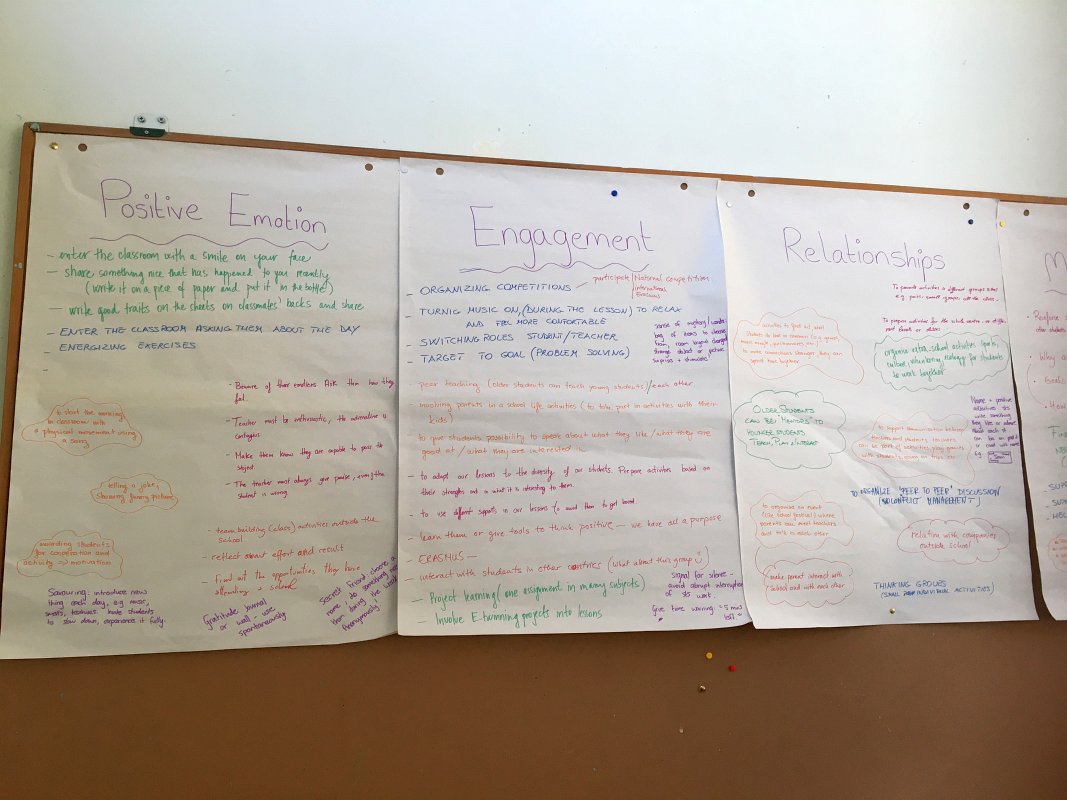 Positive Emotion
- enter the classroom with a smile on your face
- share something nice that has happened to you recently
(write it on a piece of paper and put it in the bottle)
- write good traits on the sheets on classmates' backs and share
- ENTER THE CLASSROOM ASKING THEM ABOUT THE DAY
- ENERGIZING EXERCISES
-
- Beware of their emotions. Ask them how they
feel.
- Teacher must be enthusiastic, the adrenaline is
contagious
- Make them know they are capable to pass the
subject.
- The teacher must always give praise, even if the
student is wrong.
to start the morning
in classroom with
a physical movement using
a song
telling a joke,
showing funny pictures
awarding students
for cooperation and
activity => motivation
- team building (class) activities outside the
school
- reflect about effort and result
- Find out the opportunities they have
attending a school
Savouring: introduce new
thing each day, e.g. music,
smells, textures. Invite students
to slow down, experience it fully.
Gratitude journal
or wall - use
spontaneously
Secret friend: choose a
name, do something nice
for them during the week
Anonymously!
Engagement
- ORGANIZING COMPETITIONS - participate National competition
international
Erasmus
- TURNIG MUSIC ON, (DURING THE LESSON) TO RELAX
AND FEEL MORE COMFORTABLE
- SWITCHING ROLES STUDENT/TEACHER
- TARGET TO GOAL (PROBLEM SOLVING)
sense of mystery/wonder
bag of items to choose
from, room layout changed
strange object or picture
surprise + stimulate
- peer teaching (older students can teach young students)/each other
- involving parents in a school life activities (to take part in activities with their
kids)
- to give students possibility to speak about what they like/what they are
good at / what they are interested in
- to adapt our lessons to the diversity of our students. Prepare activities based on
their strengths and in what it is interesting to them.
- to use different supports in our lessons to avoid them to get bored
- learn them or give tools to think positive - we have all a purpose
- ERASMUS -
interact with students in other countries (what about this group :))
- Project learning (one assignment in many subjects)
- Involve E-twinning projects into lessons
Signal for silence -
avoid abrupt interruption
of sts work.
Give time warning "5 mins
left"
Relationships
To prepare activities for the whole centre
activities to find out what
students to have in common
spend time together
organize extra school activities (sports,
culture, volunteering, ecology) for students
to work together
OLDER STUDENTS
CAN BE "MENTORS" TO
YOUNGER STUDENTS
TEACH, PLAY & INTERACT
to support communication between
teachers and students, teachers
can be part of activities, play games
with students, going on trips, etc
Name + positive
adjectives sts
write something
they like or admire
about each st
TO ORGANIZE "PEER TO PEER" DISCUSSION
(CONFLICT MANAGEMENT)
to organise an event
(like school festival) where
parents can meet teachers
and talk to each other
relation with companies
outside school
make parent interact with
school and with each other
THINKING GROUPS